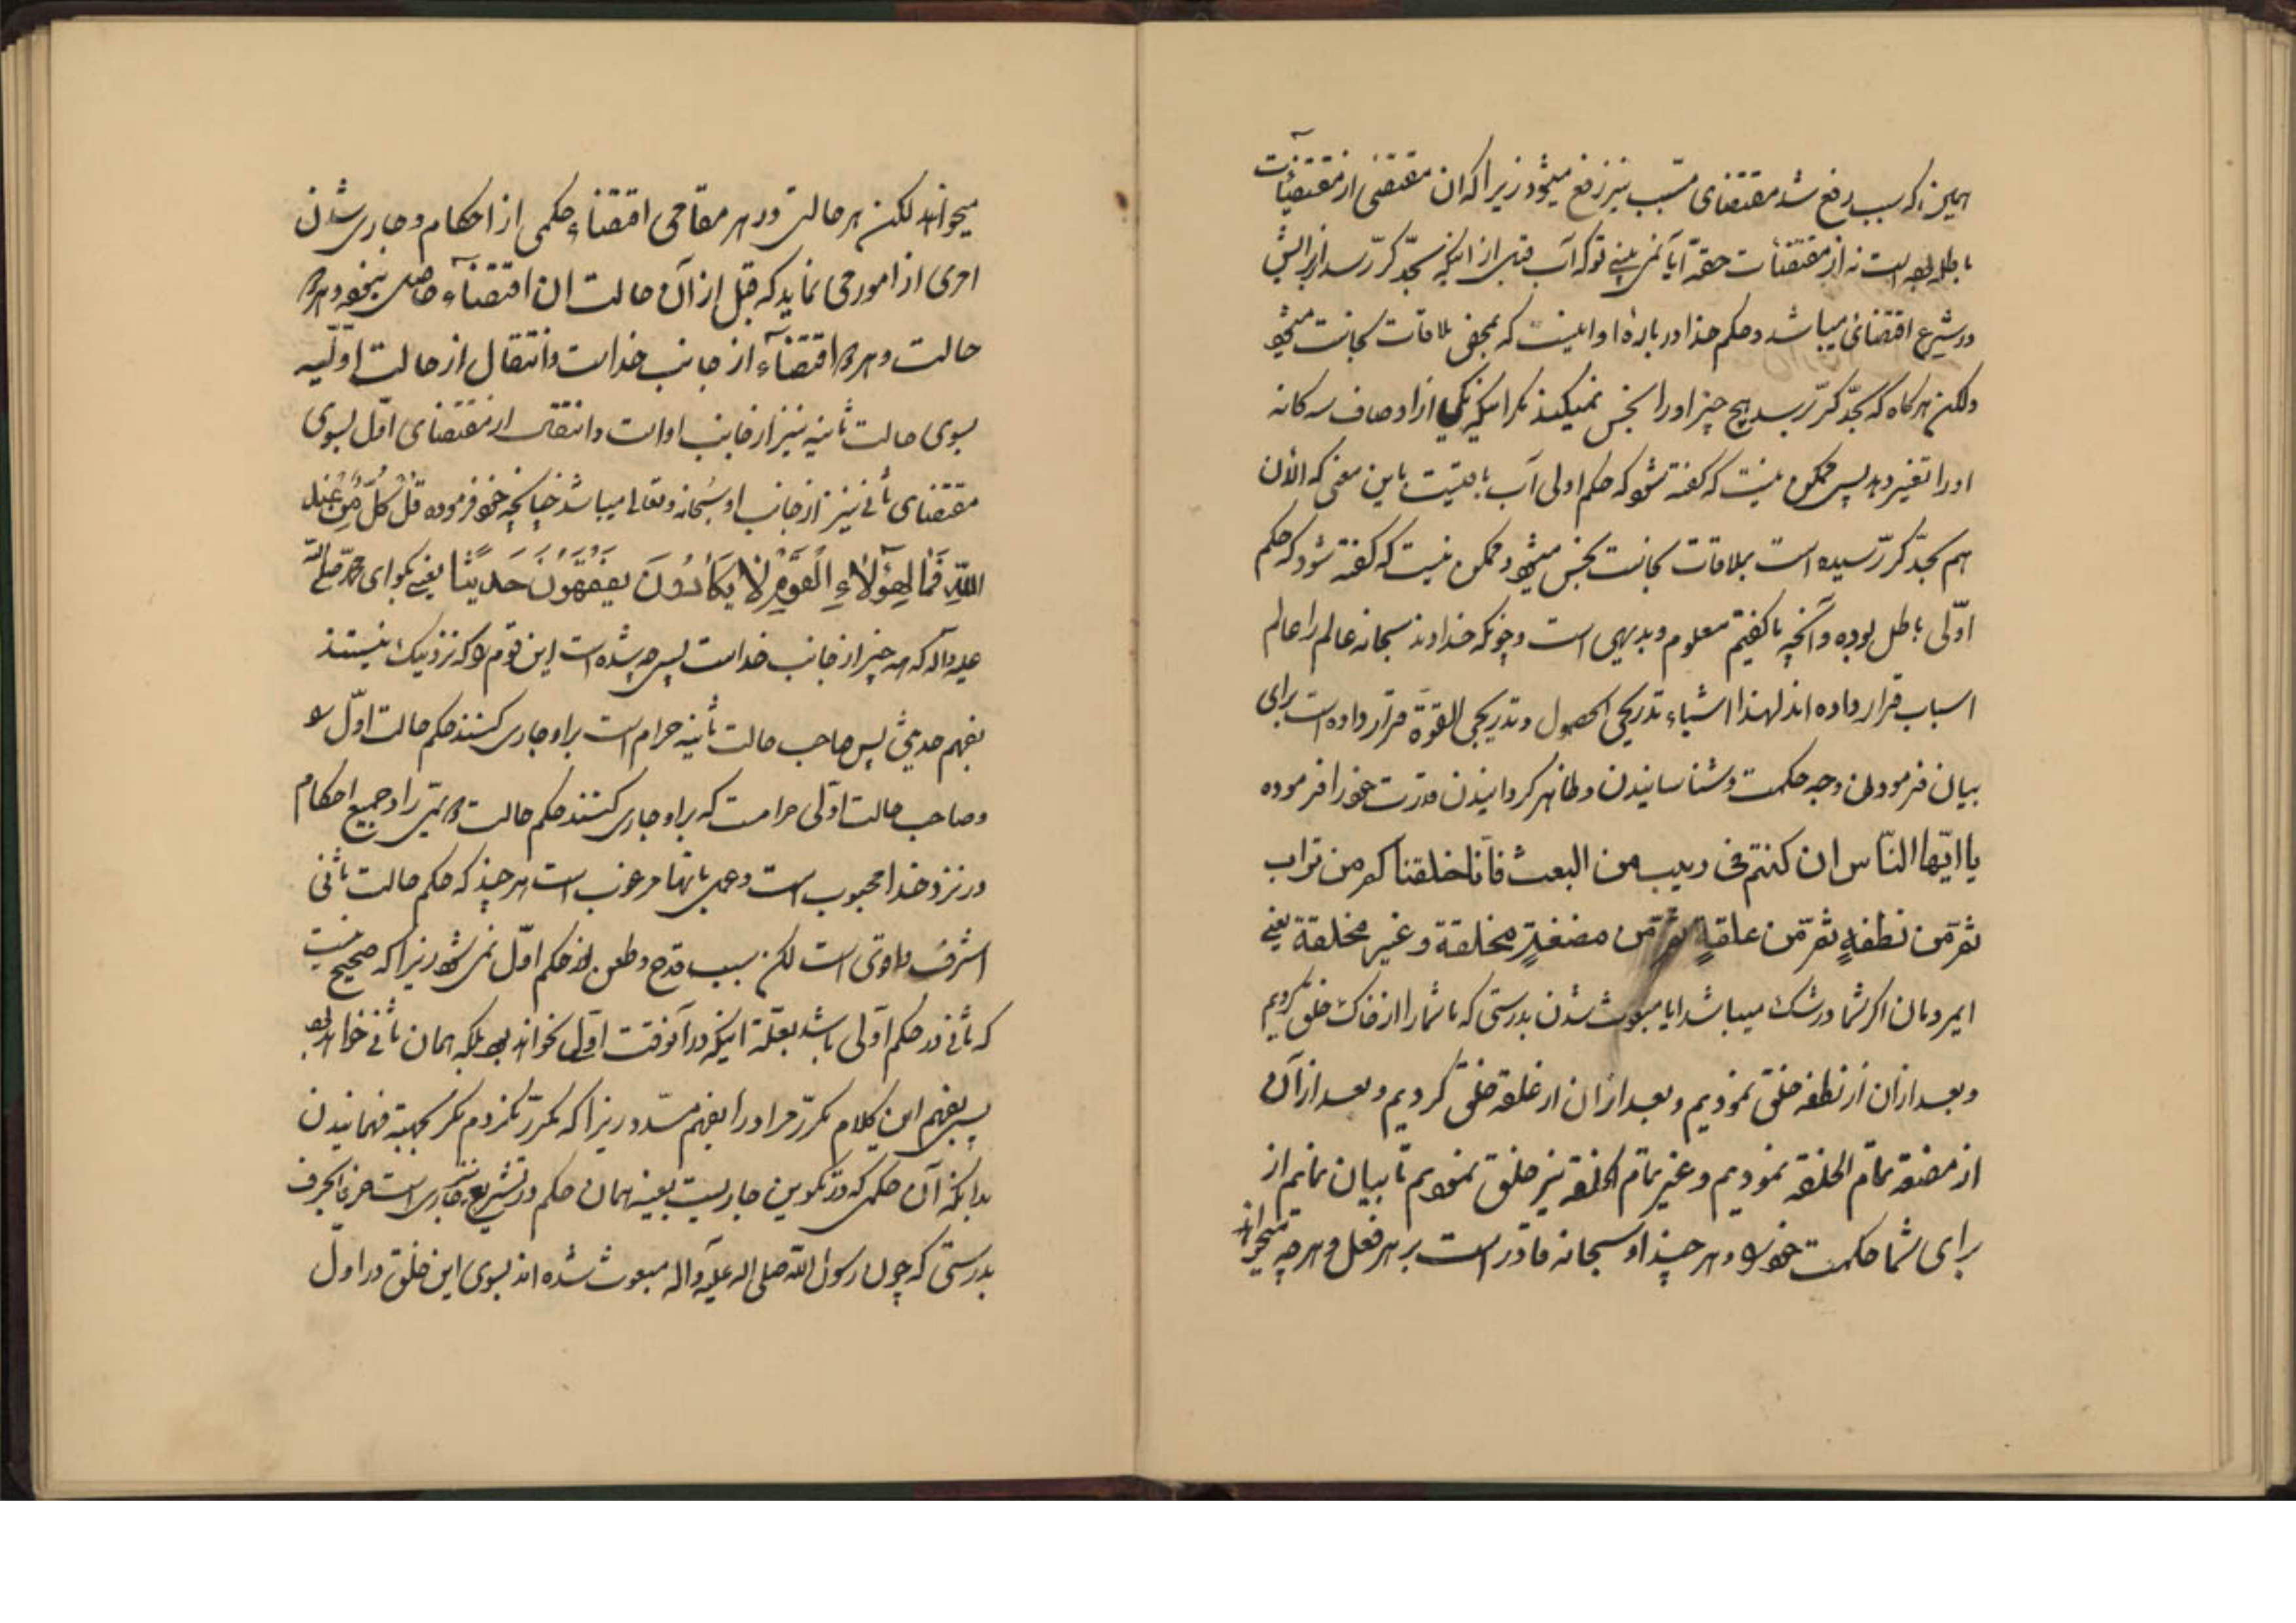 همین که سبب رفع شد مقتضای مسبب نیز رفع میشود زیرا که آن مقتضی از مقتضیات
باطله بوده است نه از مقتضیات حقه آیا نمی بینی تو که آب قبل از اینکه بحد کر رسد از برایش
در شرع اقتضائی میباشد و حکم خدا درباره او اینست که بمحض ملاقات نجاست نجس میشود
ولکن هرگاه که بحد کر رسید هیچ چیز او را نجس نمیکند مگر اینکه یکی از اوصاف سه کانه
او را تغییر دهد پس ممکن نیست که گفته شود که حکم اولی آب باقیست باین معنی که الآن
هم بحد کر رسیده است بملاقات نجاست نجس میشود و ممکن نیست که گفته شود که حکم
اولی باطل بوده و آنچه ما گفتیم معلوم و بدیهی است و چونکه خداوند سبحانه عالم را عالم
اسباب قرار داده اند لهذا اشیاء تدریجی الحصول و تدریجی القوة قرار داده است برای
بیان فرمودن وجه حکمت و شناسانیدن و ظاهر کردانیدن قدرت خود را فرموده
یا ایّها النّاس ان کنتم فی ریب من البعث فانّا خلقناکم من تراب
ثمّ من نطفةٍ ثمّ من علقةٍ ثمّ من مضغةٍ مخلقة و غیر مخلقة یعنی
ایمردمان اکر شما در شک میباشد ایا مبعوث شدن بدرستی که ما شما را از خاک خلق کردیم
و بعد از ان از نطفه خلق نمودیم و بعد از ان از علقه خلق کردیم و بعد از آن
از مضغه تمام الخلقه نمودیم و غیر تمام الخلقه نیز خلق نمودیم تا بیان نمائیم از
برای شما حکمت خود را و هر چند او سبحانه قادر است بر هر فعل و هر چه
میخواهد لکن هر حالت و در هر مقامی اقتضاء حکمی از احکام و جاری شدن
امری از امور می نماید که قبل از آن حالت ان اقتضاء حاصل نبود و هر دو
حالت و هر دو اقتضاء از جانب خداست و انتقال از حالت اولیه
بسوی حالت ثانیه نیز از جانب اوست و انتقال از مقتضای اول بسوی
مقتضای ثانی نیز از جانب او سبحانه و تعالی میباشد چنانچه خود فرموده قُلْ کُلٌّ مِنْ عِنْدِ
اللّٰهِ فَمَا لِهٰؤُلٰاءِ الْقَوْمِ لٰا یَکٰادُونَ یَفْقَهُونَ حَدیثًا یعنی بگو ای محمد صلی الله
علیه و آله که همه چیز از جانب خداست پس چه شده است این قوم را که نزدیک نیستند
بفهم حدیثی پس صاحب حالت ثانیه حرام است بر او جاری کنند حکم حالت اول را
و صاحب حالت اولی حرامست که بر او جاری کنند حکم حالت دویمی را و جمیع احکام
در نزد خدا محبوب است و عمل بانها مرغوب است هر چند که حکم حالت ثانی
اشرف و اقوی است لکن سبب قدح و طعن از حکم اول نمی شود زیرا که صحیح نیست
که ثانی در حکم اولی باشد بعلّة اینکه در آنوقت اولی نخواهد بود بلکه همان ثانی خواهد بود
پس بفهم این کلام مکرّر مرا و را بفهم مسدد زیرا که مکرر نکردم مکر بجهة فهمانیدن
بدانکه آن حکمی که در تکوین جاریست بعینه همان حکم در تشریع نیز جاری است حرفا بحرف
بدرستی که چون رسول الله صلی اله علیه و آله مبعوث شده اند بسوی این خلق در اول